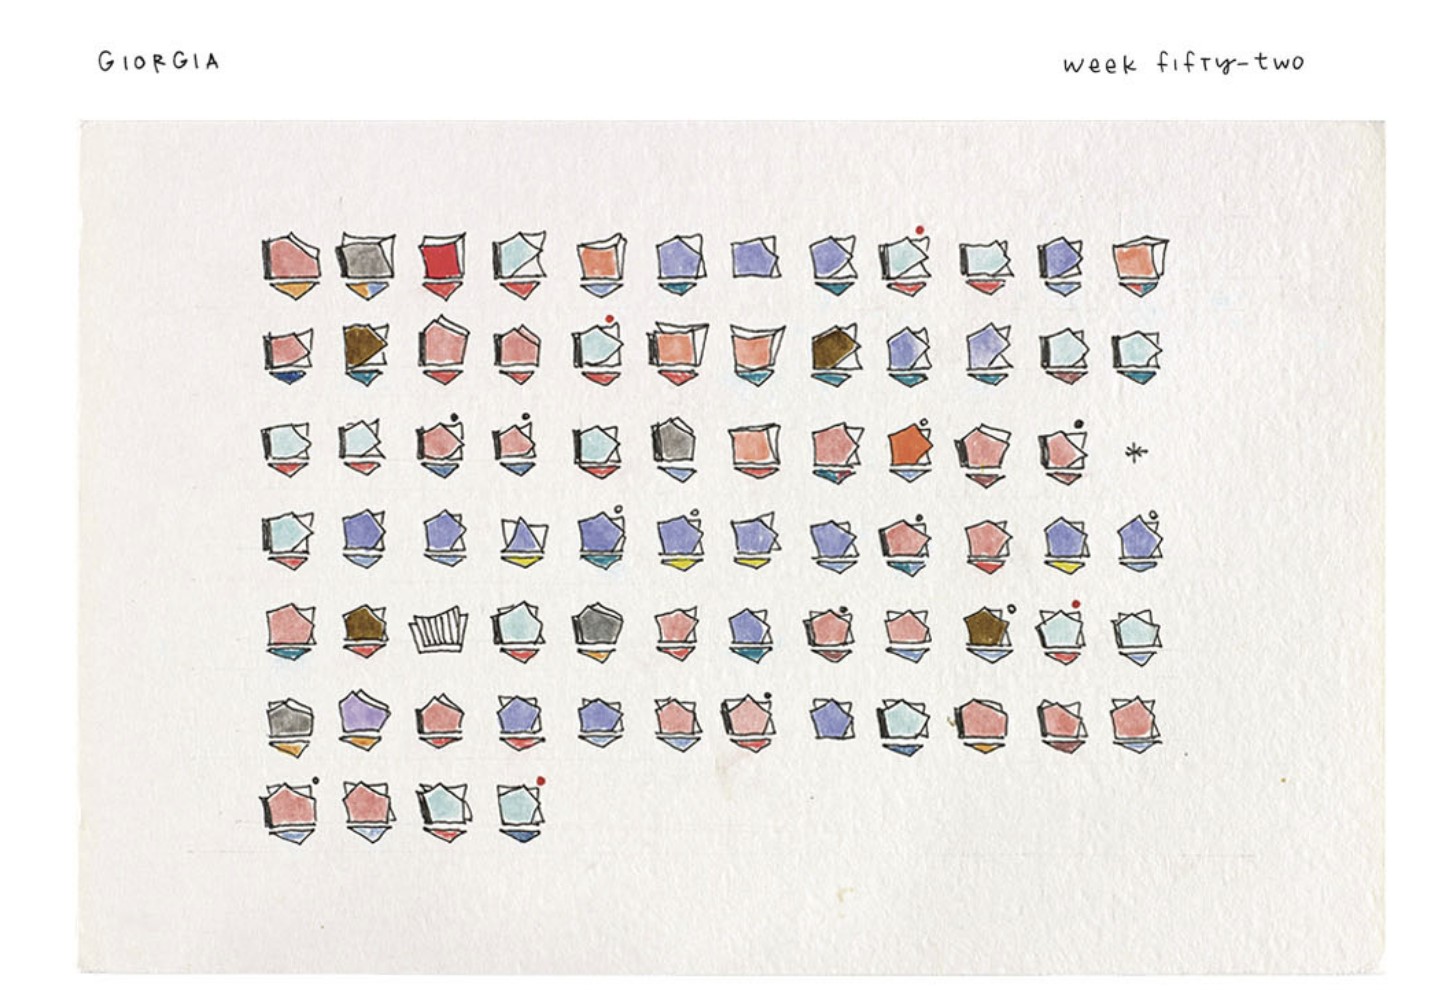 GIORGIA
week fifty-two